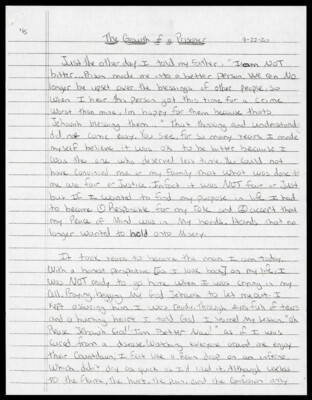 1/5
The Growth of a Prisoner 9-22-20
Just the other day I told my father, "I am NOT
bitter... Prison made me into a better person. We can no
longer be upset over the blessings of other people. So
when I hear this person got this time for a crime
worse than mine, I'm happy for them because thats
Jehovah blessing them..." That thinking and understanding
did not come easy. You see, for so many years I made
myself believe it was ok to be bitter because I
was the one who deserved less time. You could not
have convinced me or my family that what was done to
me was fair or Justice. Infact it was NOT fair or Just
but IF I wanted to find my purpose in life I had
to become ① Responsible for my role and ② accept that
my Peace of Mind was in My hands. Hands that no
longer wanted to hold onto Misery.
It took years to become the man I am today.
With a honest perspective [as I look back] on my life, I
was NOT ready to go home when I was crying in my
Cell, Praying, begging My God Jehovah to let me out. I
kept asking him, I was ready. Through eyes full of tears
and a hurting heart I told God I learned My lesson. "Oh
Please Jehovah God! I'm Better Now!" as if I was
cured from a disease. Watching everyone around me enjoy
their Countdown, I felt like a tear drop on an inferno.
Which didn't dry as quick as I'd liked it. Although useless
to the flame, the hurt, the pain, and the confusion only